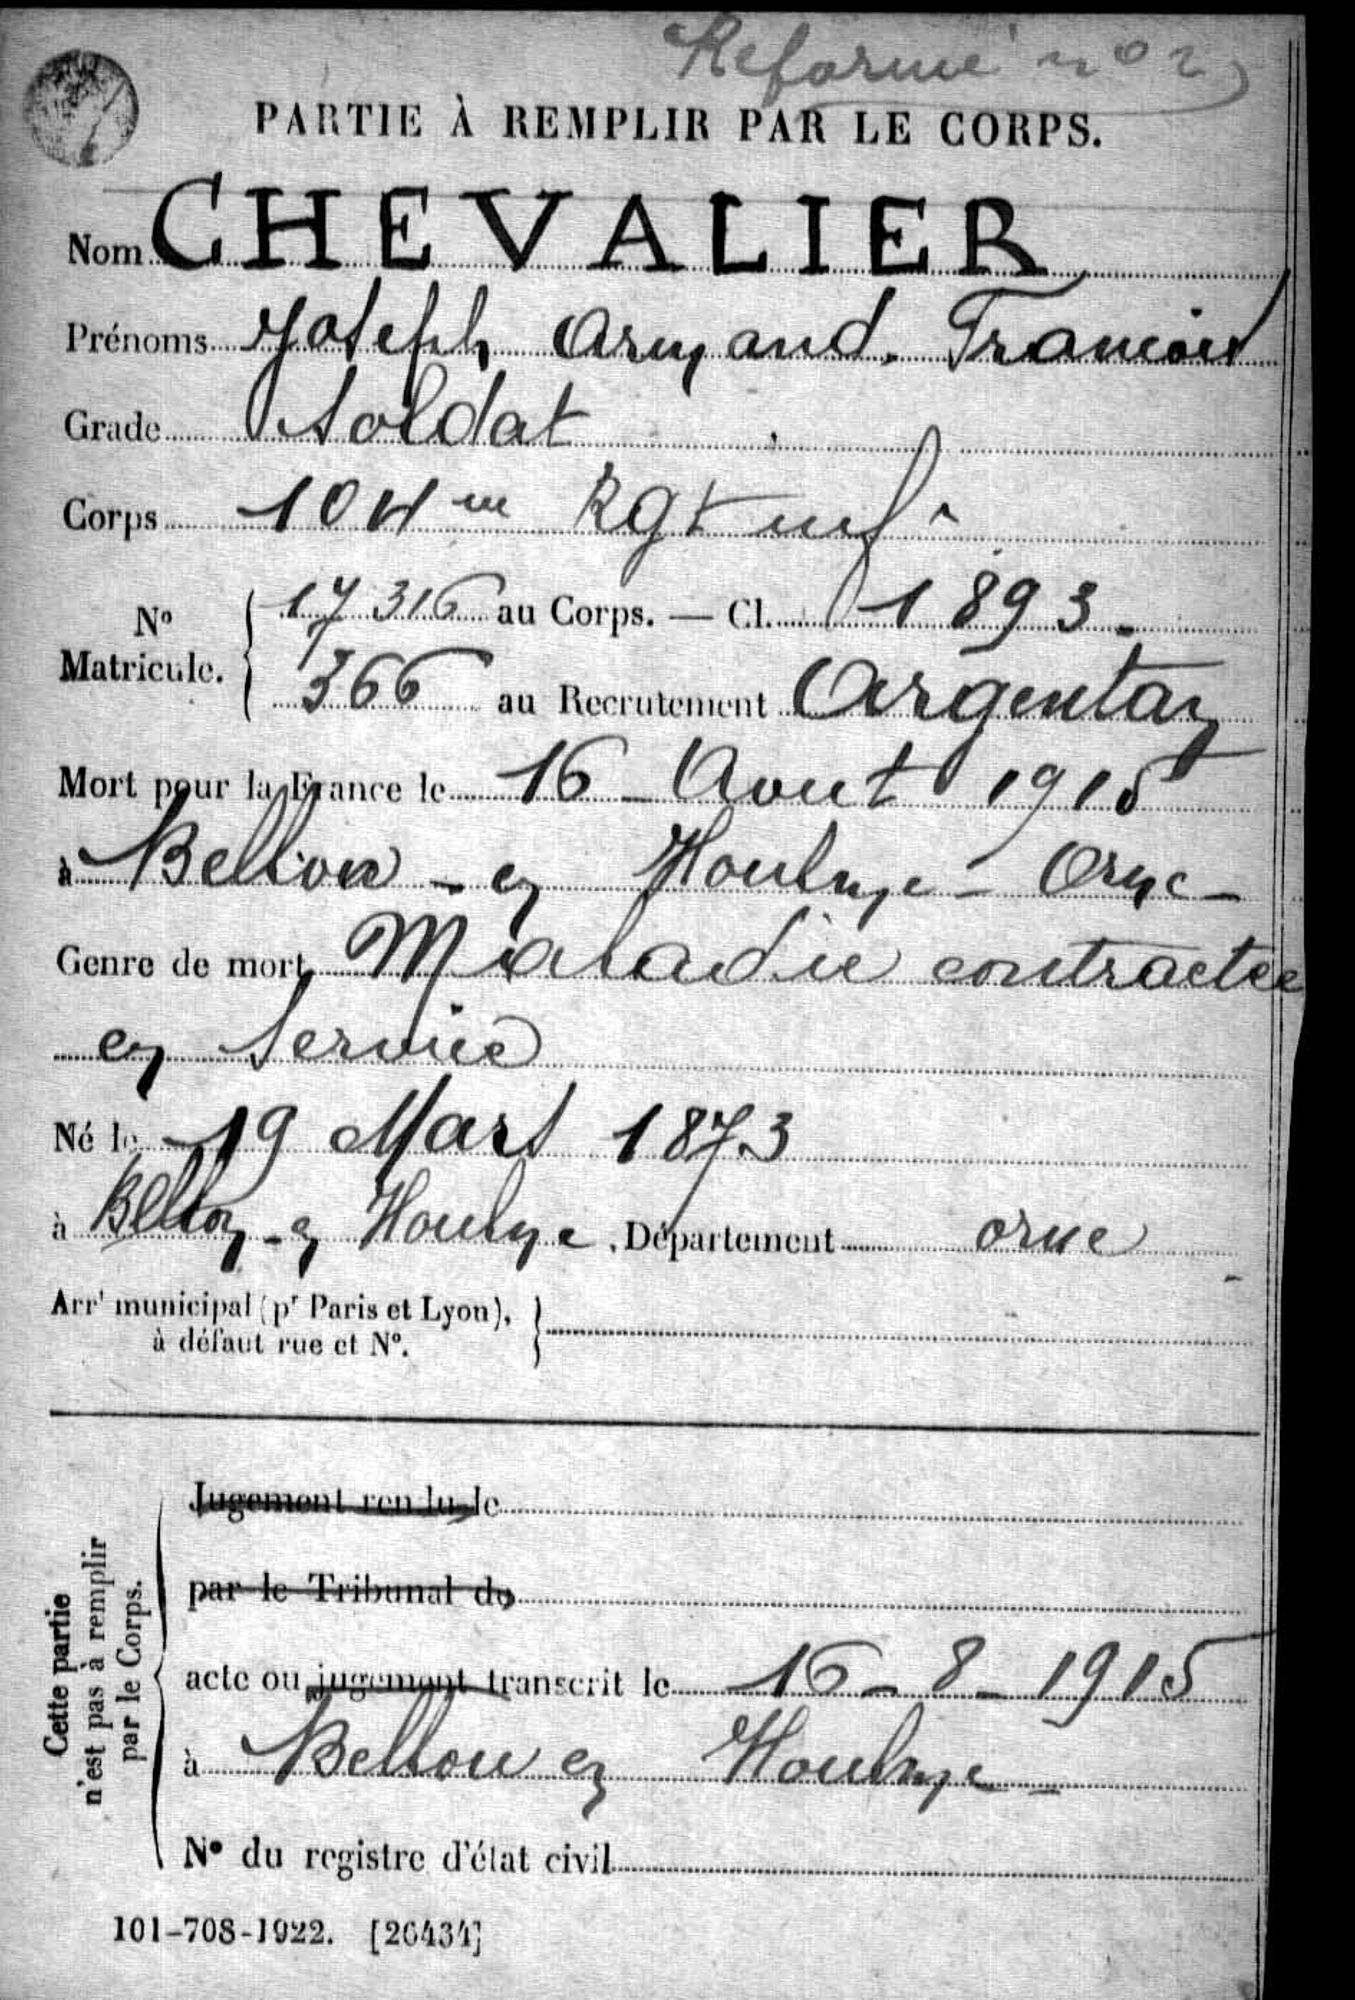 Réformé n° 2
PARTIE À REMPLIR PAR LE CORPS.
Nom CHEVALIER
Prénoms Joseph Armand. Francois
Grade Soldat
Corps 104me Rgt infie
N° Matricule. 17 316 au Corps. — Cl. 1893.
366 au Recrutement Argentan
Mort pour la France le 16 Aout 1915
à Bellou - en Houlme - Orne -
Genre de mort Maladie contractée
en service
Né le 19 Mars 1873
à Bellou - en Houlme, Département orne
Arrt municipal (pr Paris et Lyon),
à défaut rue et N°.
Cette partie
n'est pas à remplir
par le Corps.
Jugement rendu le
par le Tribunal de
acte ou jugement transcrit le 16 - 8 - 1915
à Bellou en Houlme -
N° du registre d'état civil
101-708-1922. [26434]